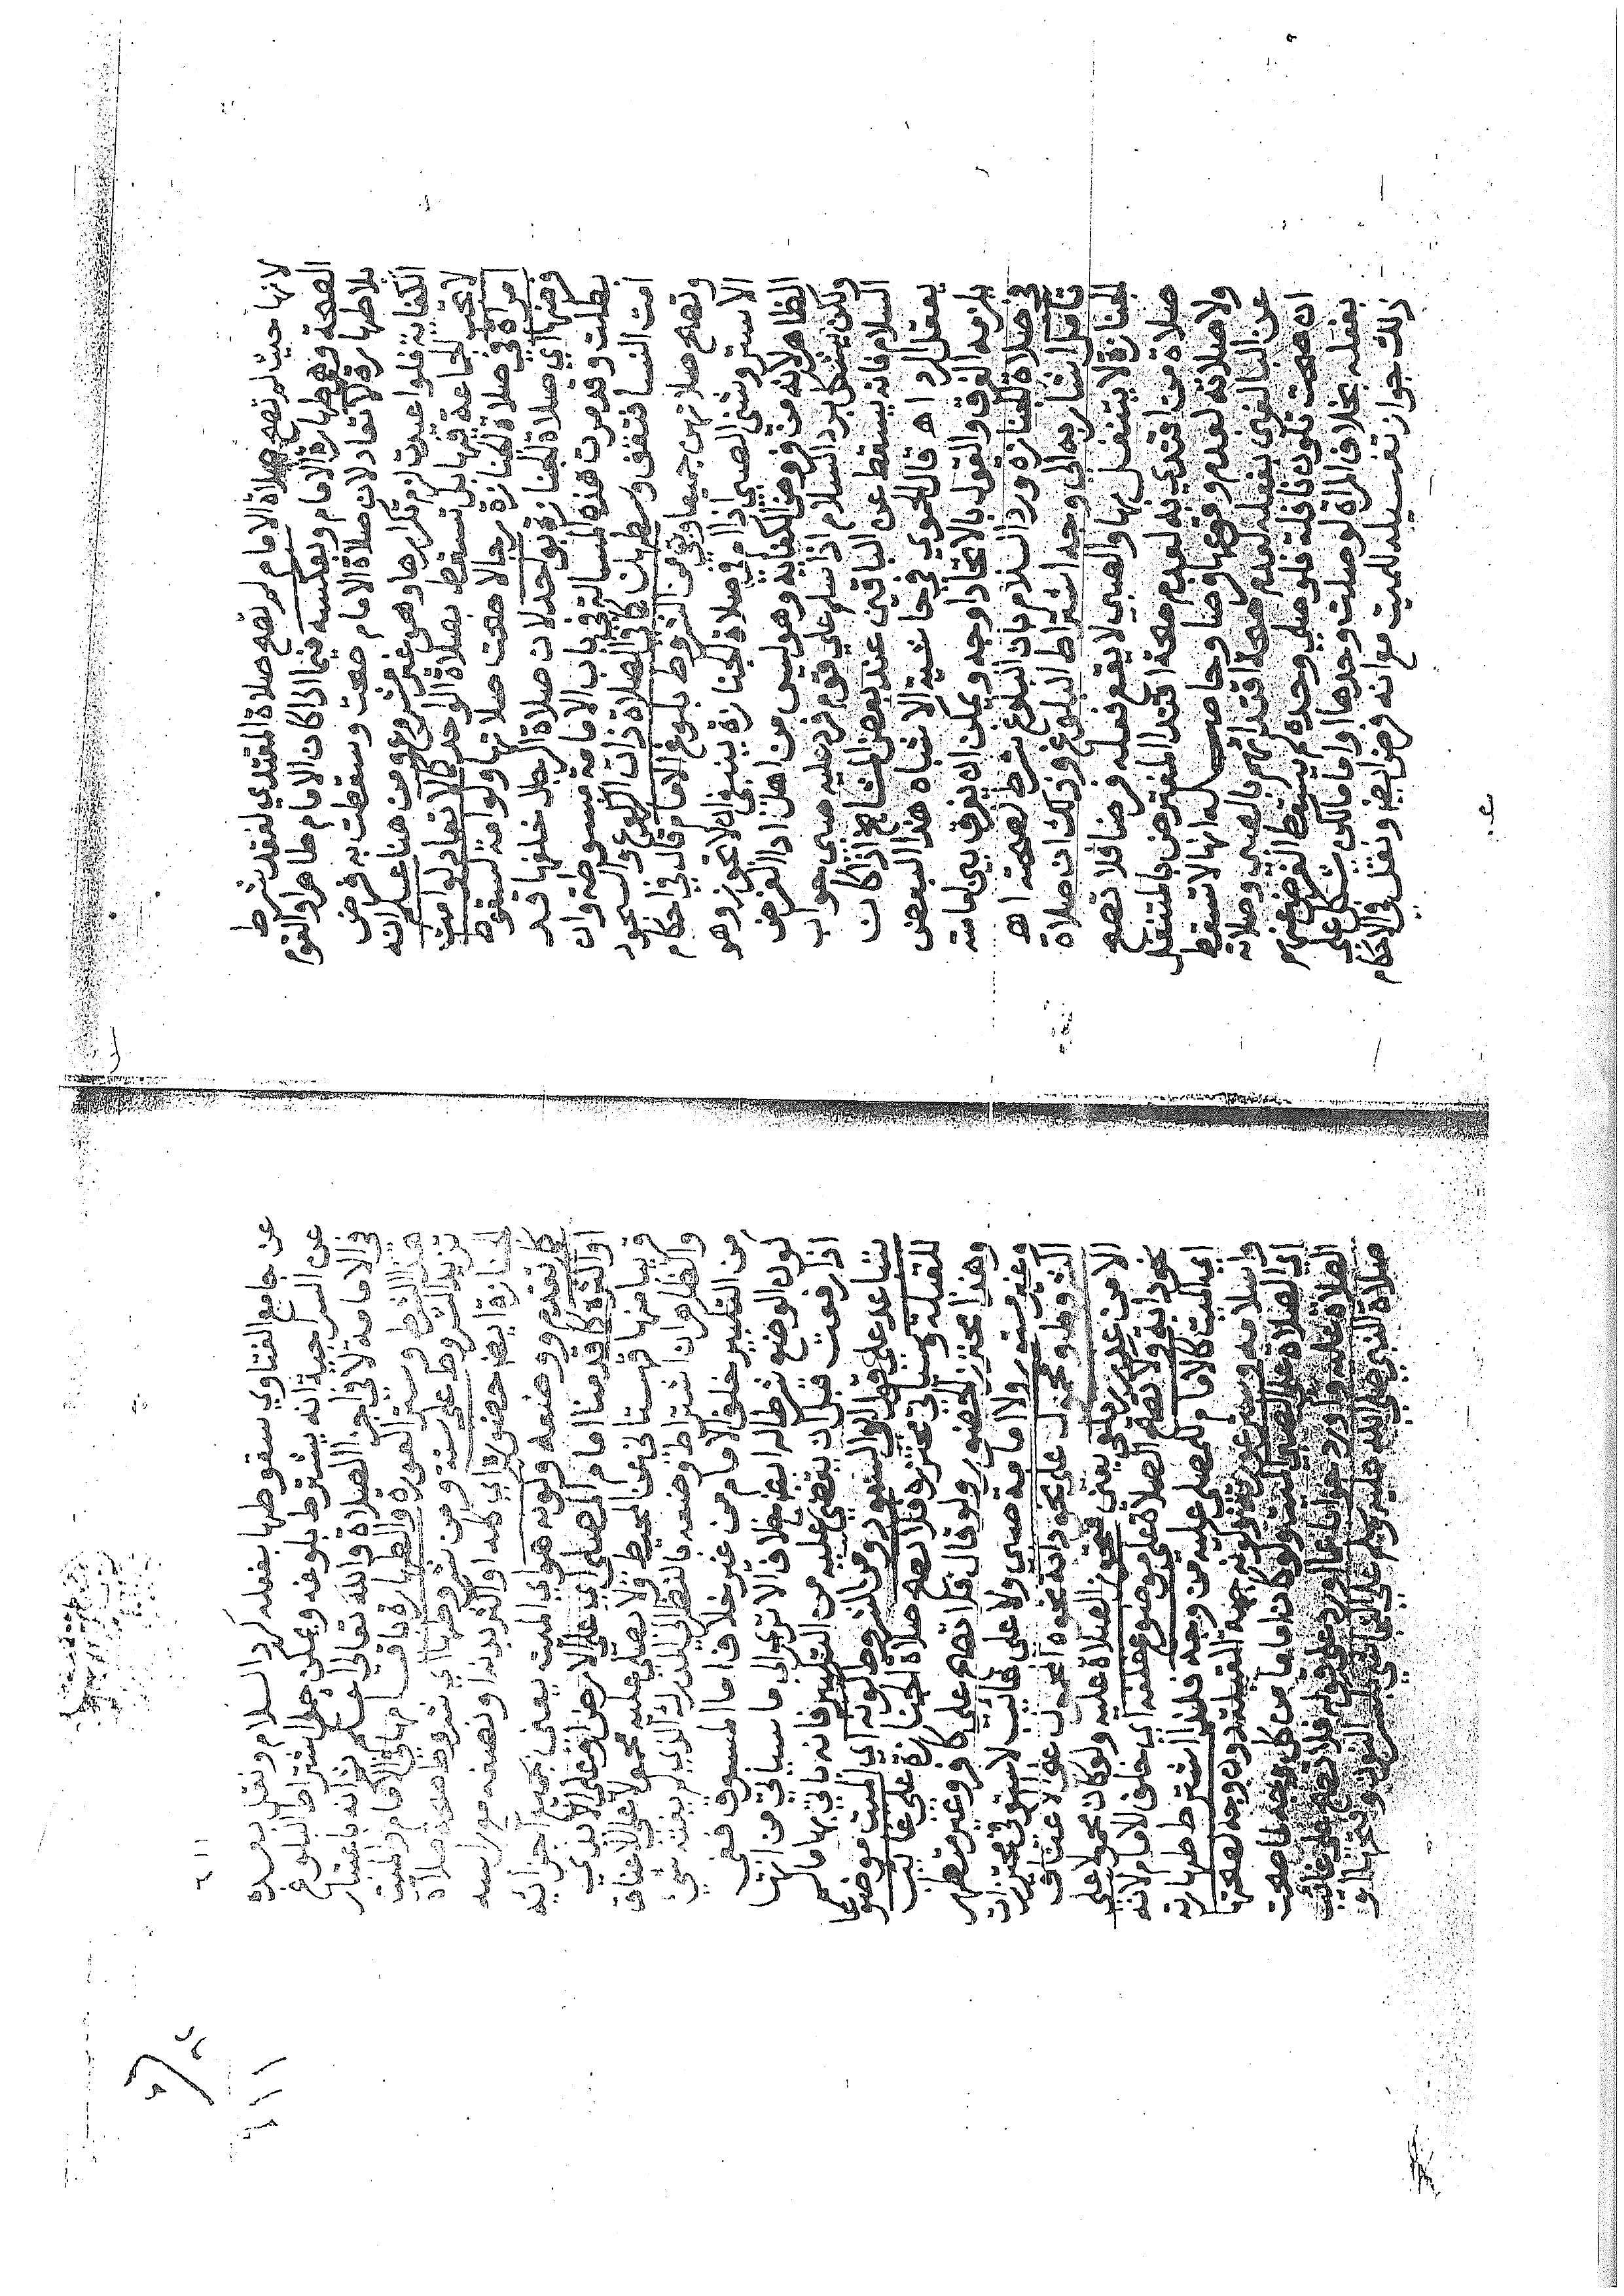 لانها حيث لم تصح صلاة الامام لم تصح صلاة المقتدي لفقد شرط
الصحة وهو طهارة الامام وبعكسه فيما اذا كان الامام طاهرا والقوم
بلا طهارة لا تعاد لان صلاة الامام صحت وسقطت به فرض
الكفاية فلو اعيدت لزم تكرارها وهو غير مشروع ومن هنا علم انه
لا تجب الجماعة فيها بل تسقط بصلاة الواحد كالا تعاد لو امت
امراة في صلاة الجنازة رجالا صحت صلاتها ولو امة لسقوط
فرضها اي صلاة الجنازة بواحد لان صلاة الرجل خلفها قد
بطلت وقد مرت هذه المسالة في باب الامامة مبسوطة وان
امت النسا فتقف وسطهن كما في الصلاة ذات الركوع والسجود
وتصح صلاتهن جميعا وبقي من الشروط بلوغ الامام قال في احكام
الاستروشني الصبي اذا ام في صلاة الجنازة ينبغي ان لا تجوز وهو
الظاهر لانه من فروض الكفاية وهو ليس من اهل ادا الفرض
ولكن يشكل برد السلام اذا سلم على قوم فرد عليه صبي جواب
السلام فانه يسقط عن الباقين عند بعض المشايخ اذا كان
يعقل الرد اه قال الحموي في حاشية الاشباه هذا البعض
يلزمه الفرق والقول بالاتحاد اوجه ويمكن ان يفرق بين امامته
في صلاة الجنازة ورد السلام بان البلوغ شرط لصحته اه
تامل اشار به الى وجه اشتراط البلوغ وذلك ان صلاة
الجنازة لا يتنفل بها والصبي لا يقع فعله فرضا فلا تصح
صلاة من اقتدى به لعدم صحة اقتدا المفترض بالمتنفل
ولا صلاته لعدم وقوعها فرضا وحاصله انها لا تسقط
عن البالغين بفعله لعدم صحة اقتدائهم بالصبي وصلاته
ان صحت تكون نافلة فلو صلى وحده لم يسقط الفرض عنهم
بفعله بخلاف المراة لو صلت وحدها او اماما لكن يشكل على
ذلك جواز تغسيله للميت مع انه فرض ايضا ونقل في الاحكام
عن جامع الفتاوي سقوطها بفعله كرد السلام ونقل بعده
عن السراجية انه يشترط بلوغه ويمكن حمل اشتراط البلوغ
في الامامة لا في اجزا الصلاة والله تعالى اعلم ثم انه باعتبار
هذا الشرط وستر العورة والطهارة
تزيد الشروط على ستة ومن شروطها اي شروط صحة صلاة
الجنازة ايضا حضوره اي كله او اكثر بدنه او نصفه مع راسه
كما تقدم ووضعه وكونه هو اي الميت يعني جميع اجزائه
او اكثره كما قدمنا امام المصلي اي على الارض او على الايدي
قريبا منها قهستاني عن المحيط فلا يصلى عليه محمولا على الاعناق
والظاهر ان اشتراط وضعه بالنظر الى المدرك الذي لم يفته شي
من التكبير خلف الامام من غير خلاف اما المسبوق ففي
كون الوضع شرطا له ايضا خلاف الا ترى الى ما سياتي من انها
اذا رفعت قبل ان يقضي ما عليه من التكبير فانه ياتي بها ما لم
تتباعد على قول ابي السعود ومن الشروط كونه اي الميت موضوعا
للقبلة وسياتي محترزه فلا تصح صلاة الجنازة على غائب
وهذا محترز الحضور ولو قال فلا تصح على كافر وغير متطهر
وغير ميت ولا امامة صبي ولا على غائب لاستوفى محترزات
الشروط ومحمول على نحو دابة نحوه المحمول على الاعناق
الا من عذر زيلعي يعني فتجوز الصلاة عليه ولو كان محمولا على
نحو دابة ولا تصح الصلاة على موضوع خلفه اي خلف الامام لانه
اي الميت كالامام للمصلى عليه من وجه فلذا اشترط طهارته
واسلامه وستر عورته وكونه جهة القبلة دون وجه لصحتها
اي الصلاة على الصبي المتوفى ولو كان اماما من كل وجه لما صحت
الصلاة عليه واورد جوابا عما اورد على قوله فلا تصح على غائب
صلاة النبي صلى الله عليه وسلم على النجاشي